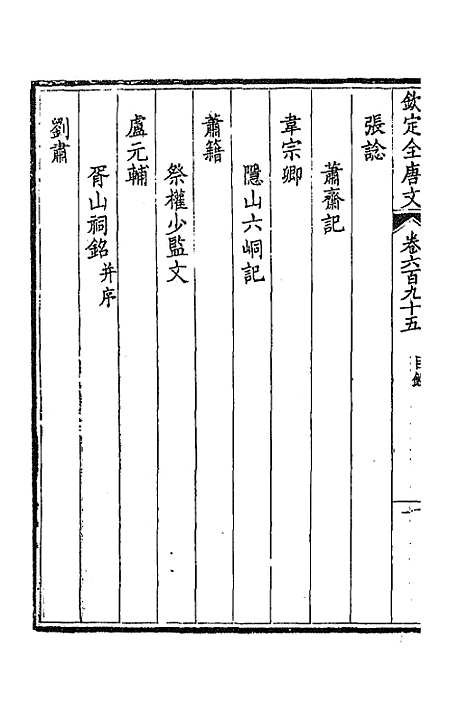 欽定全唐文 卷六百九十五 目錄 一
張諗
蕭齋記
韋宗卿
隱山六峒記
蕭籍
祭權少監文
盧元輔
胥山祠銘并序
劉肅